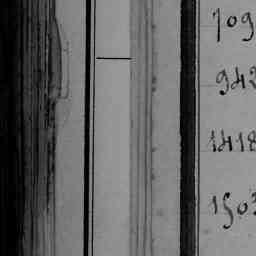 709
942
1418
1503